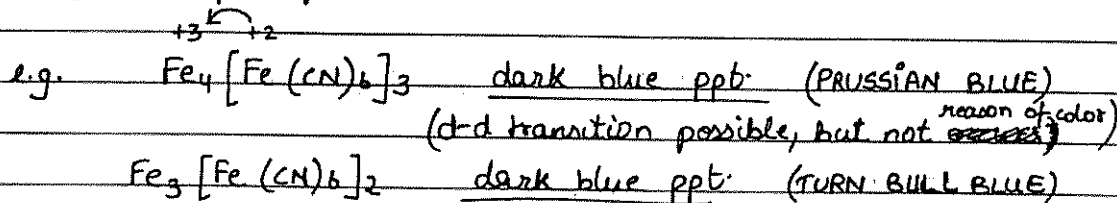 +3 +2
e.g. Fe4 [Fe (CN)6]3 dark blue ppt. (PRUSSIAN BLUE)
(d-d transition possible, but not reason of color)
Fe3 [Fe (CN)6]2 dark blue ppt. (TURN BULL BLUE)